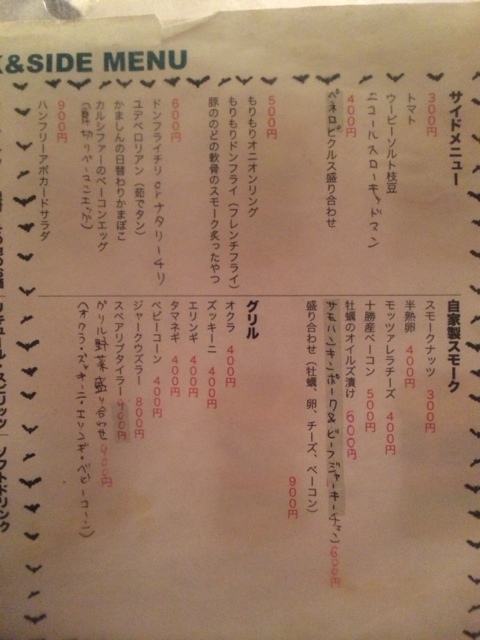 K&SIDE MENU
サイドメニュー
300円
トマト
ウービーソルト枝豆
ニコールスローキッドマン
400円
ペネロピクルス盛り合わせ
500円
もりもりオニオンリング
もりもりドンフライ（フレンチフライ）
豚ののどの軟骨のスモーク炙ったやつ
600円
ドンフライチリ or ナタリーチリ
ユデペロリアン（茹でタン）
かましんの日替わりかまぼこ
カルシファーのベーコンエッグ
（厚切りベーコンエッグ）
900円
ハンフリーアボカードサラダ
自家製スモーク
スモークナッツ 300円
半熟卵 400円
モッツァレラチーズ 400円
十勝産ベーコン 500円
牡蠣のオイルズ漬け 600円
サモハンキンポーク&ビーフジャーキーチェン 600円
盛り合わせ（牡蠣、卵、チーズ、ベーコン）
900円
グリル
オクラ 400円
ズッキーニ 400円
エリンギ 400円
タマネギ 400円
ベビーコーン 400円
ジャークウズラー 800円
スペアリブタイラー 900円
グリル野菜盛り合わせ 900円
（オクラ・ズッキーニ・エリンギ・ベビーコーン）
ソフトドリンク